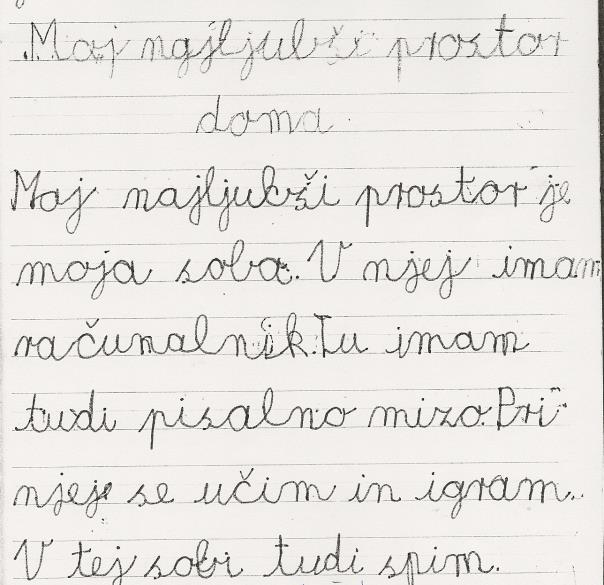 Moj najljubši prostor
doma
Moj najljubši prostor je
moja soba. V njej imam
računalnik. Tu imam
tudi pisalno mizo. Pri
njeje se učim in igram.
V tej sobi tudi spim.